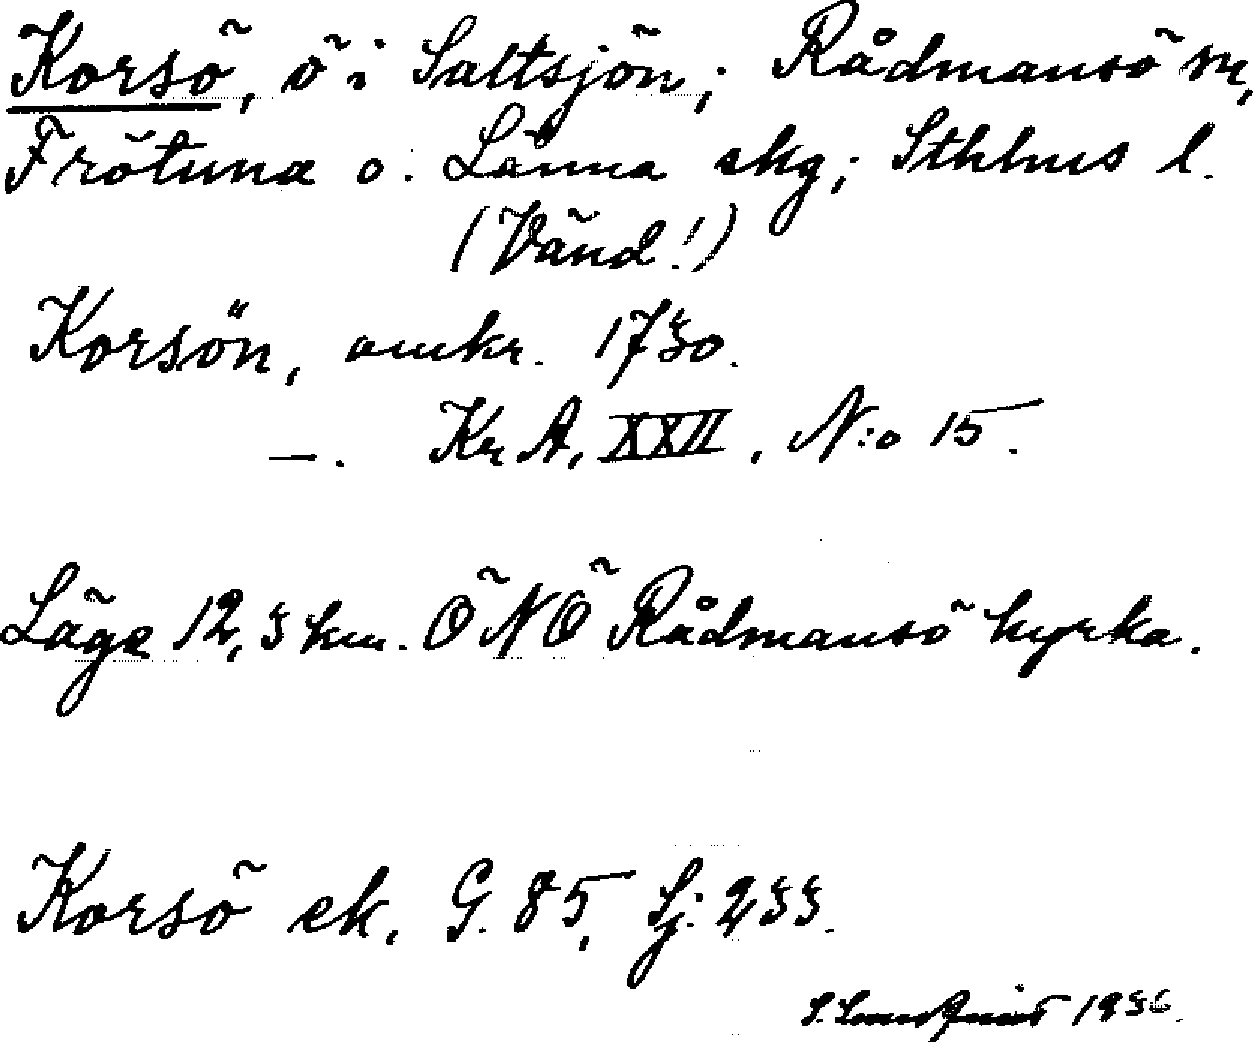 Korsö, ö i Saltsjön; Rådmansö sn,
Frötuna o. Länna skg; Sthlms l.
(Vänd!)
Korsön, omkr. 1730.
—. Kr A, XXII, N:o 15.
Läge 12,3 km. ÖNÖ Rådmansö kyrka.
Korsö ek. G. 85, Sj: 233.
1936